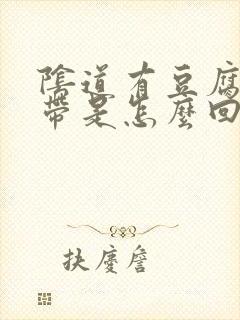 陰道有豆腐
帶是怎麼回
扶慶詹